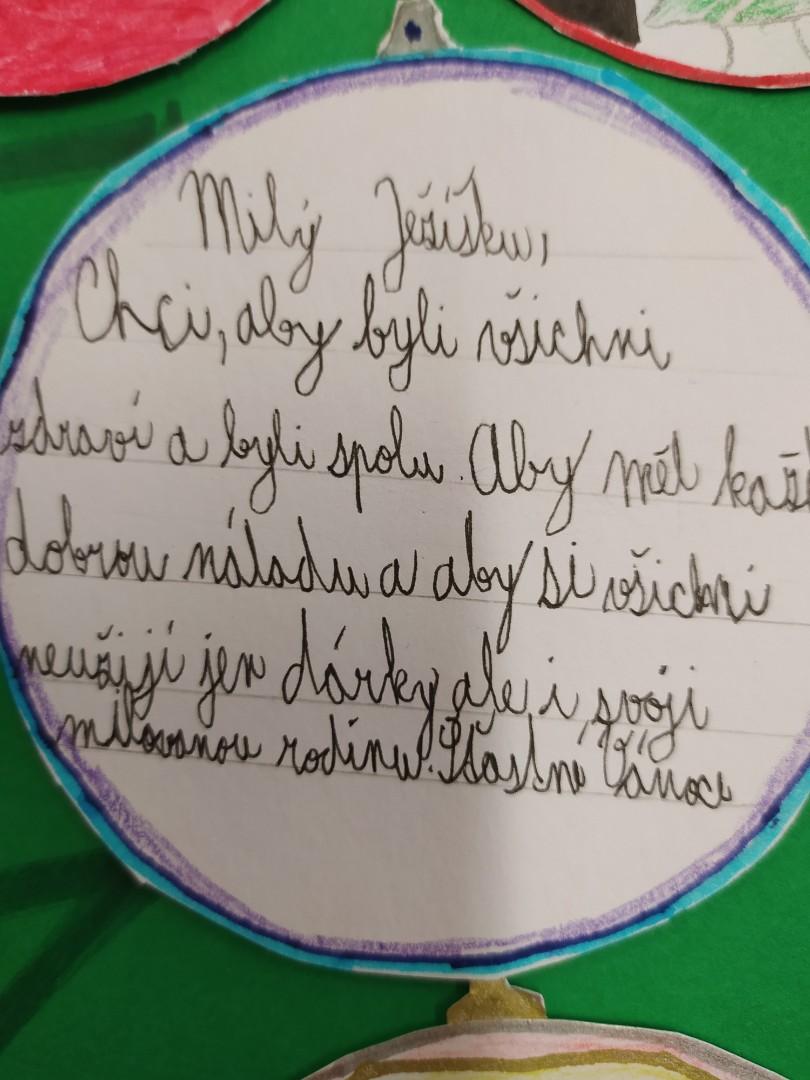 Milý Ježíšku,
Chci, aby byli všichni
zdraví a byli spolu. Aby měl
dobrou náladu a aby si všichni
neužijí jen dárky ale i svoji
milovanou rodinu. Šťastné Vánoce